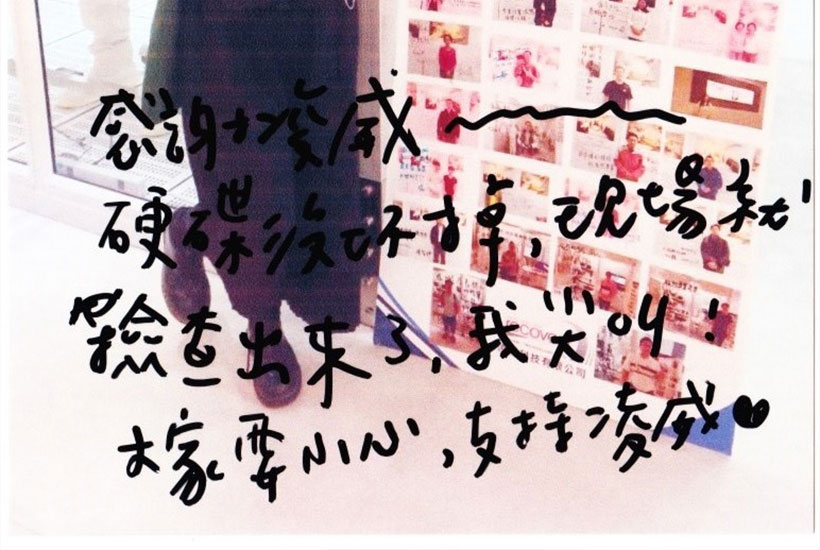 感謝凌威～
硬碟沒坏掉，現場就
檢查出來了，我哭叫！
大家要小心，支持凌威♥
ECOVE
科技有限公司